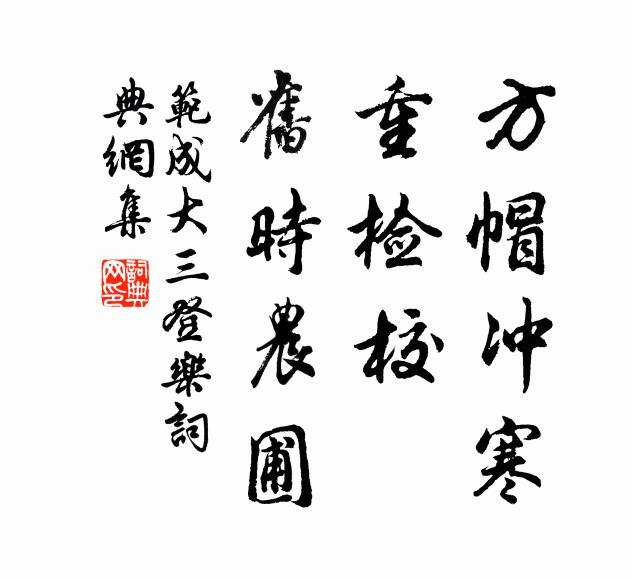 方帽冲寒
重检校
舊時農圃
範成大三登樂詞
典網集
詞典
网印